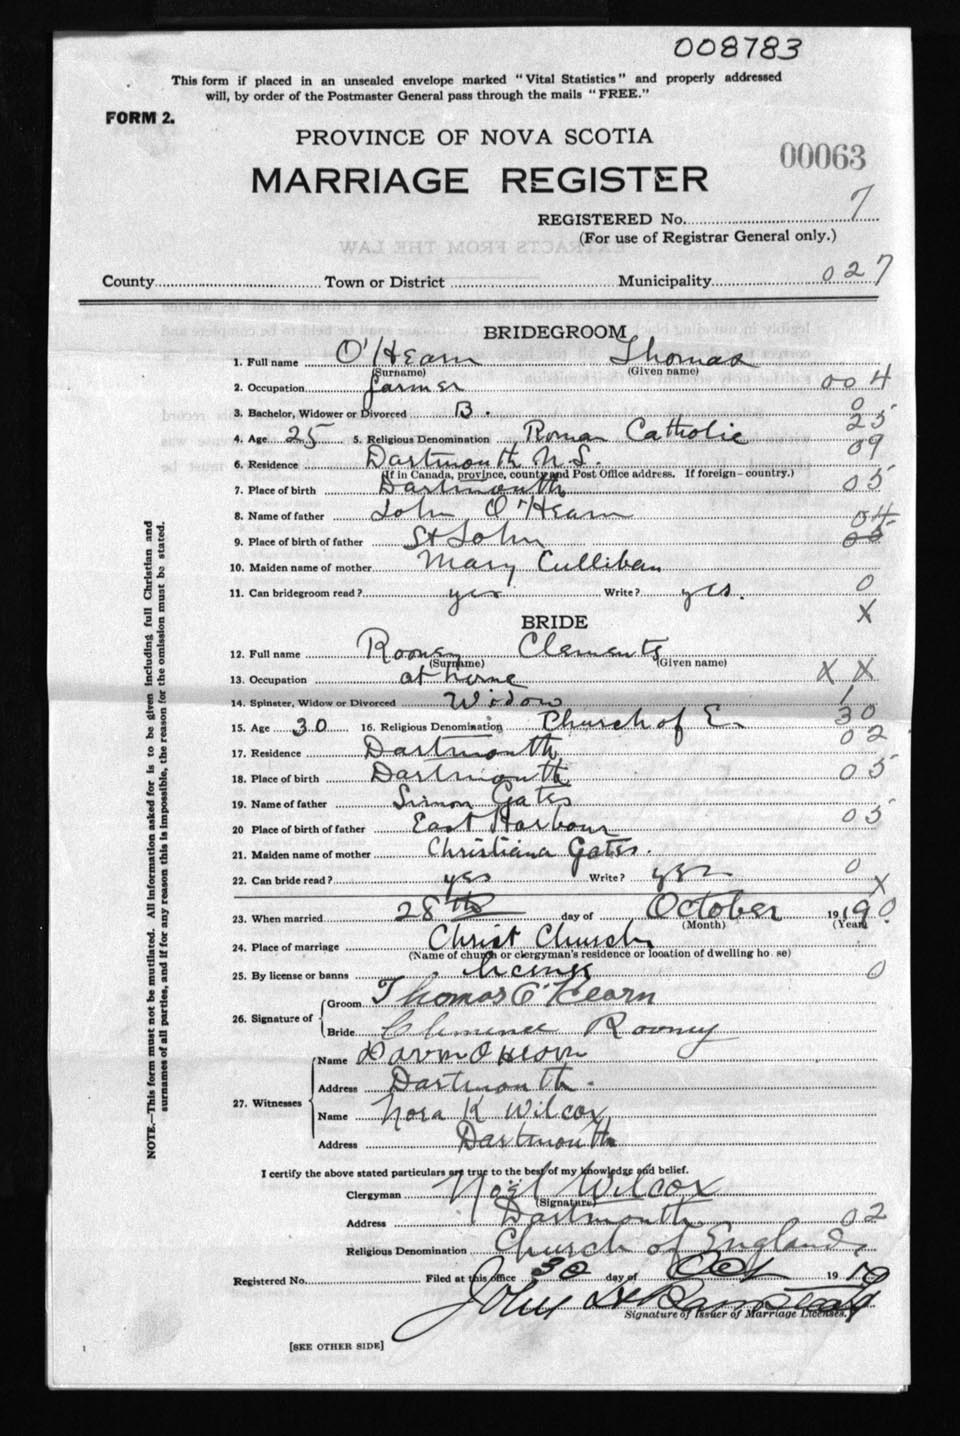 008783
This form if placed in an unsealed envelope marked "Vital Statistics" and properly addressed
will, by order of the Postmaster General pass through the mails "FREE."
FORM 2.
PROVINCE OF NOVA SCOTIA
00063
MARRIAGE REGISTER
REGISTERED No. 7
(For use of Registrar General only.)
County Town or District Municipality 027
BRIDEGROOM
1. Full name O'Hearn Thomas
(Surname) (Given name)
2. Occupation farmer 004
3. Bachelor, Widower or Divorced B. 0
4. Age 25 5. Religious Denomination Roman Catholic 25
6. Residence Dartmouth N.S. 09
(If in Canada, province, county and Post Office address. If foreign - country.)
7. Place of birth Dartmouth 05
8. Name of father John O'Hearn
9. Place of birth of father St John 04
10. Maiden name of mother Mary Culliban
11. Can bridegroom read? yes Write? yes. 0
X
BRIDE
12. Full name Rooney Clements
(Surname) (Given name)
13. Occupation at home X X
14. Spinster, Widow or Divorced Widow 1
15. Age 30 16. Religious Denomination Church of E. 30
17. Residence Dartmouth 02
18. Place of birth Dartmouth 05
19. Name of father Simon Gates
20 Place of birth of father East Harbour 05
21. Maiden name of mother Christiana Gates.
22. Can bride read? yes Write? yes 0
X
23. When married 28th day of October 1919 0
(Month) (Year)
24. Place of marriage Christ Church
(Name of church or clergyman's residence or location of dwelling ho se)
25. By license or banns license 0
26. Signature of
Groom Thomas O'Hearn
Bride Clemence Rooney
27. Witnesses
Name
Address Dartmouth.
Name Nora K Wilcox
Address Dartmouth
I certify the above stated particulars are true to the best of my knowledge and belief.
Clergyman Noel Wilcox
(Signature)
Address Dartmouth 02
Religious Denomination Church of England
Registered No. Filed at this office 30 day of Oct 1919
John
Signature of Issuer of Marriage Licenses.
[SEE OTHER SIDE]
NOTE.—This form must not be mutilated. All information asked for is to be given including full Christian and
surnames of all parties, and if for any reason this is impossible, the reason for the omission must be stated.